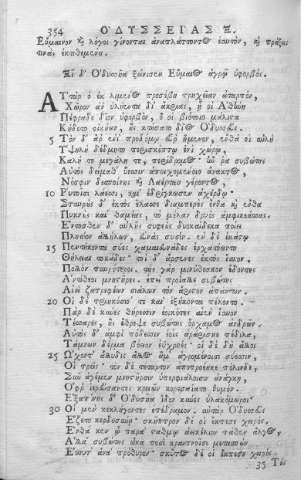 354 ΟΔΥΣΣΕΙΑΣ Ξ.
Εὔμαιον καὶ λόγοι γίνονται ἀναπλάττοντος ἑαυτὸν, καὶ πράξεις
Ξῖ δ' Ὀδυσῆα ξείνισεν Εὔμαιος ἀγρῷ ὑφορβός.
Αὐτὰρ ὁ ἐκ λιμένος προσέβη τρηχεῖαν ἀταρπὸν,
Χῶρον ἀν' ὑλήεντα δι' ἄκριας, ᾗ οἱ Ἀθήνη
Πέφραδε δῖον ὑφορβὸν, ὅ οἱ βιότοιο μάλιστα
Κήδετο οἰκήων, οὓς κτήσατο δῖος Ὀδυσσεύς.
5 Τὸν δ' ἄρ' ἐνὶ προδόμῳ εὗρ' ἥμενον, ἔνθα οἱ αὐλὴ
Ὑψηλὴ δέδμητο περισκέπτῳ ἐνὶ χώρῳ,
Καλή τε μεγάλη τε, περίδρομος· ἥν ῥα συβώτης
Αὐτὸς δείμαθ' ὕεσσιν ἀποιχομένοιο ἄνακτος,
Νόσφιν δεσποίνης καὶ Λαέρταο γέροντος,
10 Ῥυτοῖσιν λάεσσι, καὶ ἐθρίγκωσεν ἀχέρδῳ·
Σταυροὺς δ' ἐκτὸς ἔλασσε διαμπερὲς ἔνθα καὶ ἔνθα
Πυκνοὺς καὶ θαμέας, τὸ μέλαν δρυὸς ἀμφικεάσσας.
Ἔντοσθεν δ' αὐλῆς συφεοὺς δυοκαίδεκα ποίει
Πλησίον ἀλλήλων, εὐνὰς συσίν· ἐν δὲ ἑκάστῳ
15 Πεντήκοντα σύες χαμαιευνάδες ἐρχατόωντο
Θήλειαι τοκάδες· τοὶ δ' ἄρσενες ἐκτὸς ἴαυον,
Πολλὸν παυρότεροι, τοὺς γὰρ μινύθεσκον ἔδοντες
Ἀντίθεοι μνηστῆρες· ἐπεὶ προΐαλλε συβώτης
Αἰεὶ ζατρεφέων σιάλων τὸν ἄριστον ἁπάντων.
20 Οἱ δὲ τριηκόσιοί τε καὶ ἑξήκοντα πέλοντο.
Πὰρ δὲ κύνες θήρεσσιν ἐοικότες αἰὲν ἴαυον
Τέσσαρες, οὓς ἔθρεψε συβώτης ὄρχαμος ἀνδρῶν.
Αὐτὸς δ' ἀμφὶ πόδεσσιν ἑοῖς ἀράρισκε πέδιλα,
Τάμνων δέρμα βόειον ἐϋχροές· οἱ δὲ δὴ ἄλλοι
25 Ὤχοντ' ἄλλυδις ἄλλος ἅμ' ἀγρομένοισι σύεσσιν,
Οἱ τρεῖς· τὸν δὲ τέταρτον ἀποπροέηκε πόλινδε,
Σῦν ἀγέμεν μνηστῆρσιν ὑπερφιάλοισιν ἀνάγκῃ,
Ὄφρ' ἱερεύσαντες κρειῶν κορεσαίατο θυμόν.
Ἐξαπίνης δ' Ὀδυσῆα ἴδον κύνες ὑλακόμωροι·
30 Οἱ μὲν κεκλήγοντες ἐπέδραμον. αὐτὰρ Ὀδυσσεὺς
Ἕζετο κερδοσύνῃ, σκῆπτρον δέ οἱ ἔκπεσε χειρός.
Ἔνθα κεν ᾧ παρὰ σταθμῷ ἀεικέλιον πάθεν ἄλγος,
Ἀλλὰ συβώτης ὦκα ποσὶ κραιπνοῖσι μετασπὼν
Ἔσσυτ' ἀνὰ πρόθυρον· σκῦτος δέ οἱ ἔκπεσε χειρός.
35 Τοὺς